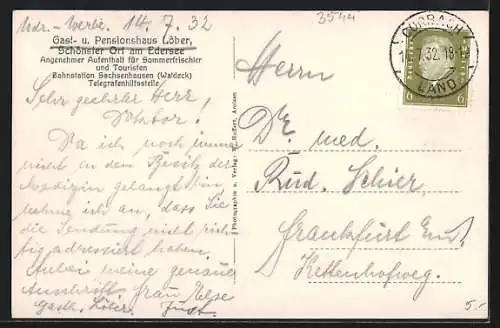 Ndr.-Werbe. 14.7.32
Gast- u. Pensionshaus Löber,
Schönster Ort am Edersee
Angenehmer Aufenthalt für Sommerfrischler
und Touristen
Bahnstation Sachsenhausen (Waldeck)
Telegrafenhilfsstelle
Sehr geehrter Herr
Doktor!
Da ich noch immer
nicht in den Besitz der
Medizin gelangt bin,
nehme ich an, dass Sie
die Sendung nicht rich-
tig adressiert haben.
Anbei meine genaue
Anschrift Frau
Gasth. Löber.
3544
CORBACH
32.18
LAND
6 6
Herrn
Dr. med.
Rud. Schier,
Frankfurt a/M.
Kettenhofweg.
5.-